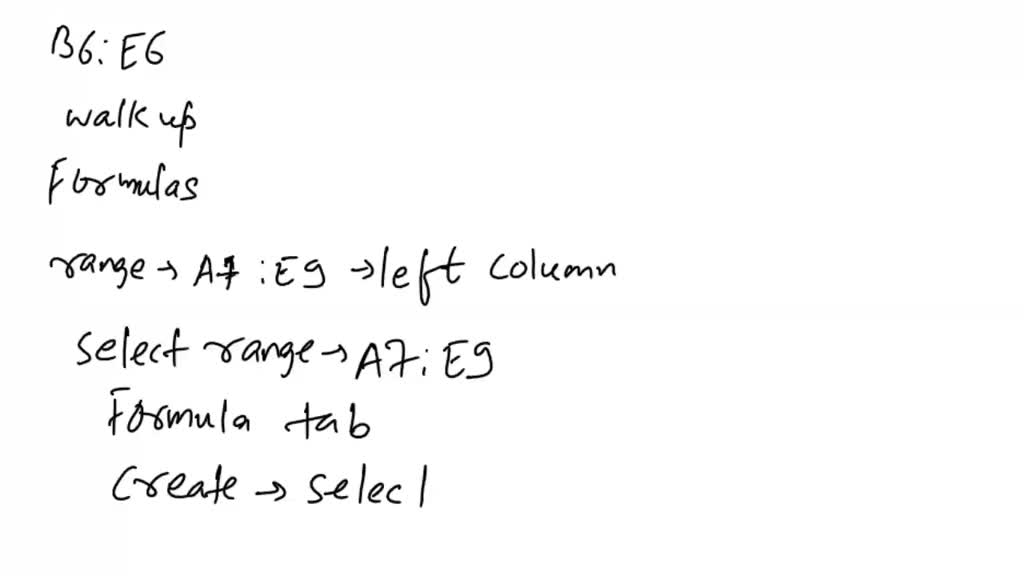 B6:E6
walk up
Formulas
range → A7:E9 → left column
select range → A7:E9
Formula tab
Create → selec